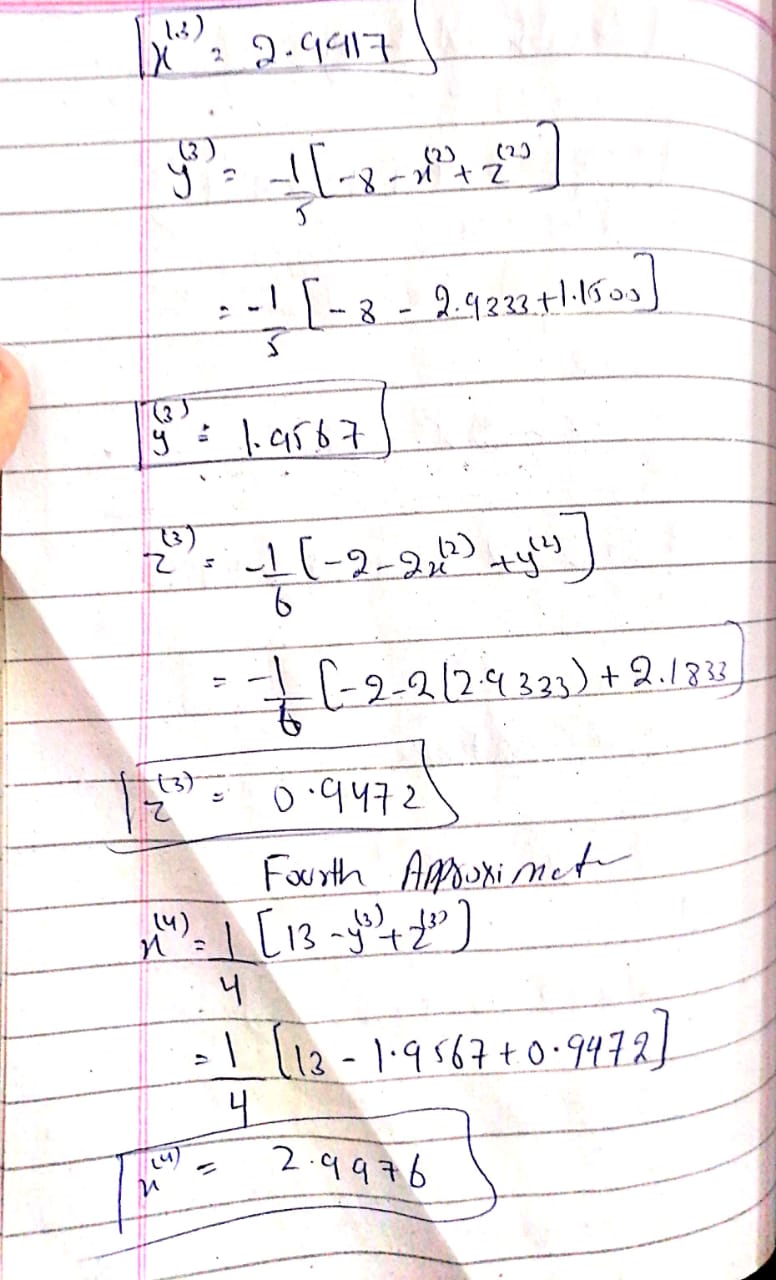 x^(3) = 2.9917
y^(3) = -1/5 [-8 - x^(2) + z^(2)]
= -1/5 [-8 - 2.9333 + 1.1500]
y^(3) = 1.9567
z^(3) = -1/6 [-2 - 2x^(2) + y^(2)]
= -1/6 [-2 - 2(2.9333) + 2.1833]
z^(3) = 0.9472
Fourth Approximate
x^(4) = 1/4 [13 - y^(3) + z^(3)]
= 1/4 [13 - 1.9567 + 0.9472]
x^(4) = 2.9976